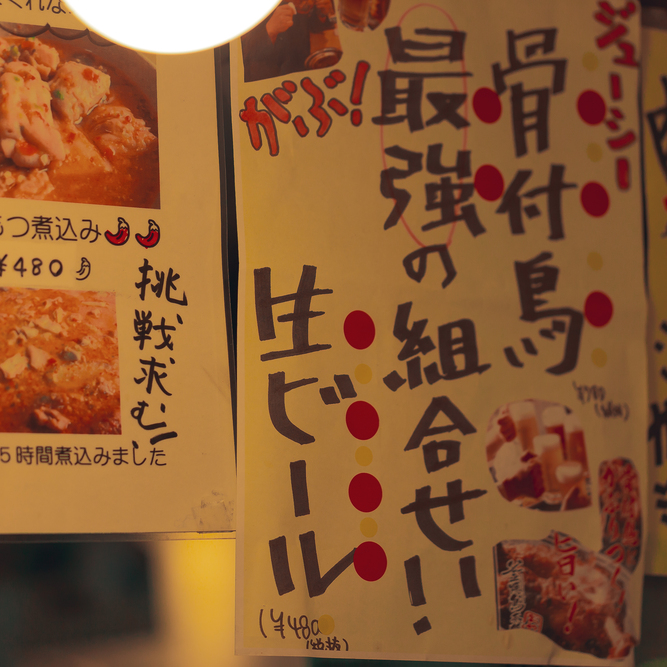 ジューシー
骨付鳥
最強の組合せ!!
がぶ!
生ビール
(¥480
(税抜)
もつ煮込み
¥480
挑戦求む!!
5時間煮込みました